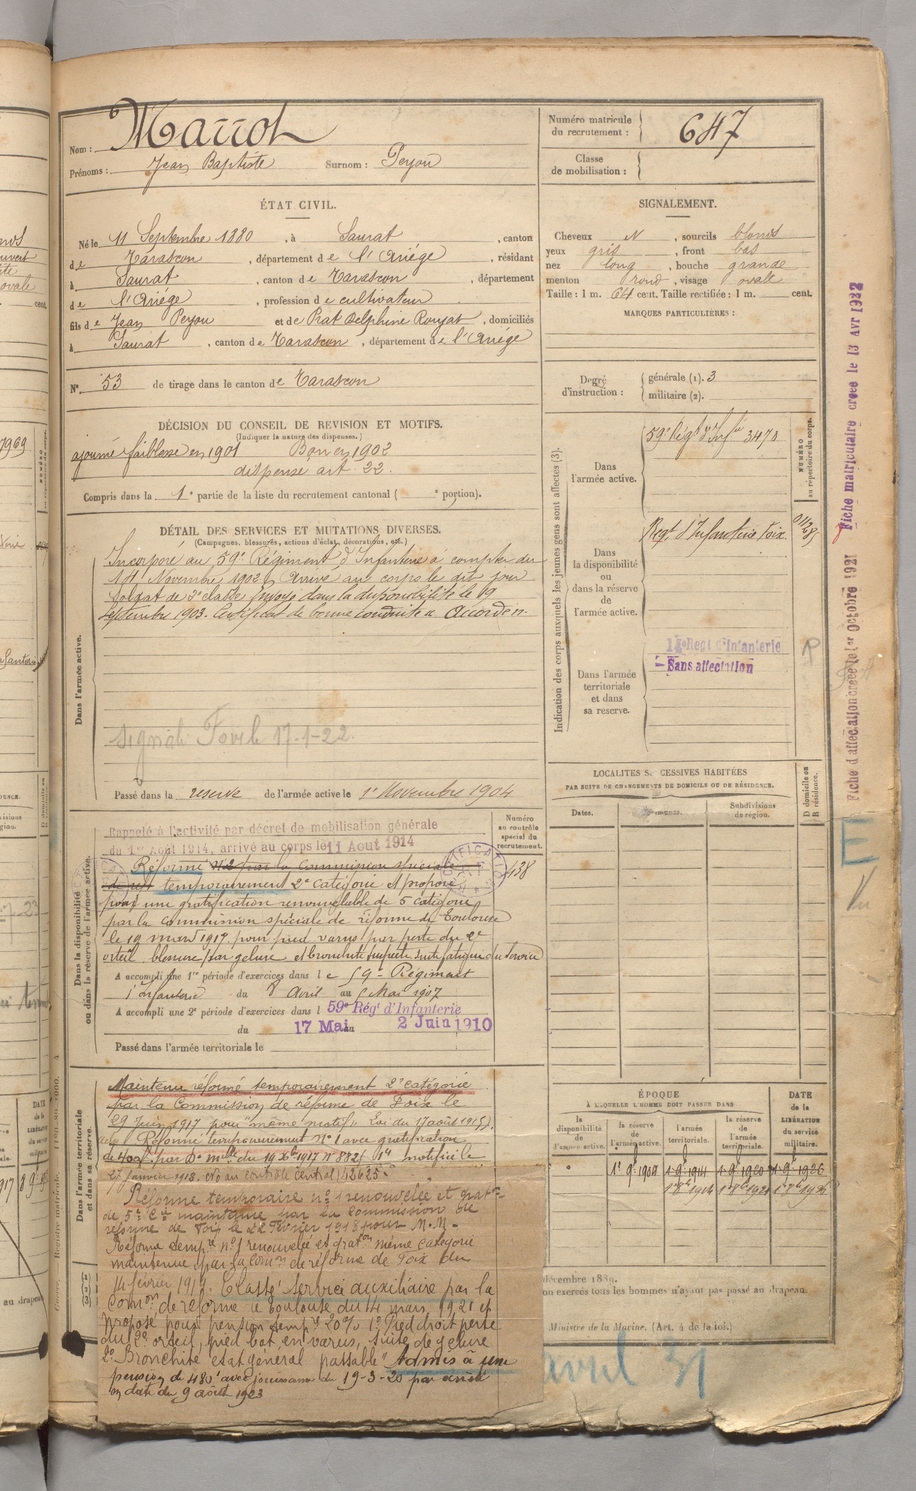 Nom : Marrot
Prénoms : Jean Baptiste Surnom : Peyou
Numéro matricule du recrutement : 647
Classe de mobilisation :
ÉTAT CIVIL.
Né le 11 Septembre 1880, à Saurat, canton
de Tarascon, département de l'Ariège, résidant
à Saurat, canton de Tarascon, département
de l'Ariège, profession de cultivateur
fils de Jean Peyou et de Prat Delphine Rouzat, domiciliés
à Saurat, canton de Tarascon, département de l'Ariège
N° 53 de tirage dans le canton de Tarascon
SIGNALEMENT.
Cheveux N, sourcils blonds
yeux gris, front bas
nez long, bouche grande
menton rond, visage ovale
Taille : 1 m. 64 cent. Taille rectifiée : 1 m. cent.
MARQUES PARTICULIÈRES :
Degré d'instruction : générale (1). 3
militaire (2).
DÉCISION DU CONSEIL DE REVISION ET MOTIFS.
(Indiquer la nature des dispenses.)
ajourné faiblesse en 1901 Bon en 1902
dispensé art. 22.
Compris dans la 1e partie de la liste du recrutement cantonal ( e portion).
DÉTAIL DES SERVICES ET MUTATIONS DIVERSES.
(Campagnes, blessures, actions d'éclat, décorations, etc.)
Dans l'armée active.
Incorporé au 59e Régiment d'Infanterie à compter du
14 Novembre 1902, Arrivé au corps le dit jour
soldat de 2e classe, envoyé dans la disponibilité le 19
Septembre 1903. Certificat de bonne conduite « Accordé »
Signalé Foville 17-1-22
Passé dans la reserve de l'armée active le 1er Novembre 1904
Indication des corps auxquels les jeunes gens sont affectés (3).
NUMÉRO au répertoire du corps.
Dans l'armée active.
59e Régt d'Infie 3470
Dans la disponibilité ou dans la réserve de l'armée active.
Regt d'Infanterie Foix
Dans l'armée territoriale et dans sa reserve.
Regt d'Infanterie
Sans affectation
LOCALITÉS SUCCESSIVES HABITÉES
PAR SUITE DE CHANGEMENTS DE DOMICILE OU DE RÉSIDENCE.
D domicile ou R résidence.
Dates.
Communes.
Subdivisions de région.
Dans la disponibilité ou dans la réserve de l'armée active.
Numéro au contrôle spécial du recrutement.
Rappelé à l'activité par décret de mobilisation générale
du 1er Août 1914, arrivé au corps le 11 Aout 1914
Réformé N°2 par la Commission spéciale
de réf temporairement 2e Catégorie et proposé
pour une gratification renouvelable de 5e catégorie
par la commission spéciale de réforme de Toulouse
le 19 mars 1917 pour pied varus par perte du 2e
orteil blessure par gelure et bronchite suspecte suite fatigues du service
A accompli une 1re période d'exercices dans le 59e Régiment
d'infanterie du 8 Avril au 5 Mai 1907
A accompli une 2e période d'exercices dans le 59e Rég't d'Infanterie
du 17 Mai au 2 Juin 1910
Passé dans l'armée territoriale le
Dans l'armée territoriale et dans sa réserve.
Maintenu réformé temporairement 2e catégorie
par la Commission de réforme de Foix le
29 Juin 1917 pour "même motif" Loi du 17 aout 1915.
Réformé temporairement N°1 avec gratification
27 Janvier 1918.
Réforme temporaire n°1 renouvelée et grat°n
de 5e Cie maintenue par la Commission de
réforme de Foix le 22 Février 1918 pour M.M.
Réforme tempre n°1 renouvelée et grat°n même catégorie
maintenue par la Com°n de réforme de Foix du
14 février 1919. Classé Service auxiliaire par la
Com°n de réforme de Toulouse du 4 mars 1921 et
proposé pour pension temp're 20% 1° Pied droit perte
du 2e orteil, pied bot en varus, suite de gelure
2° Bronchite état général passable. Admis à une
pension de 480f avec jouissance du 19-3-20 par arrêté
en date du 9 août 1923
ÉPOQUE
À LAQUELLE L'HOMME DOIT PASSER DANS
DATE de la LIBÉRATION du service militaire.
la disponibilité de l'armée active.
la réserve de l'armée active.
l'armée territoriale.
la réserve de l'armée territoriale.
1er 9bre 1904 1er 9bre 1914 1er 9bre 1920 1er 9bre 1926
décembre 1889.
on exercés tous les hommes n'ayant pas passé au drapeau.
Ministre de la Marine. (Art. 4 de la loi.)
avril 31
Fiche matriculaire créée le 13 Avr 1922
Fiche d'affectation créée le 1er Octobre 1921